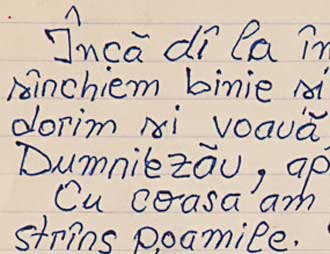 Încă dî la în
sînchiem binie si
dorim si voauă
Dumniezău, ap
Cu coasa am
strîns poamile.